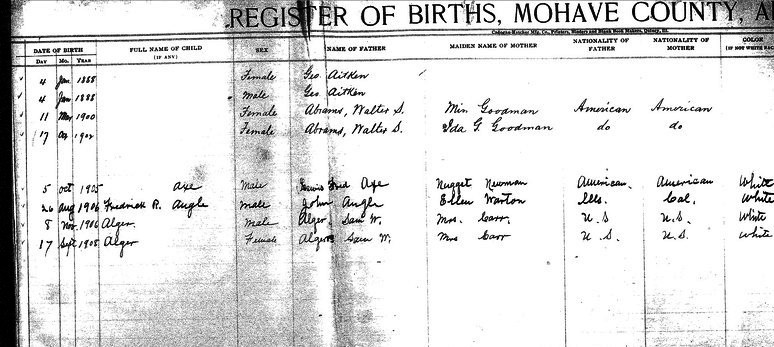 REGISTER OF BIRTHS, MOHAVE COUNTY, A
DATE OF BIRTH FULL NAME OF CHILD (IF ANY) SEX NAME OF FATHER MAIDEN NAME OF MOTHER NATIONALITY OF FATHER NATIONALITY OF MOTHER COLOR
DAY Mo. YEAR
4 Jan 1888 Female Geo. Aitken
4 Jan 1888 Male Geo. Aitken
11 1900 Female Abrams, Walter S. Goodman American American
17 Female Abrams, Walter S. Ida G. Goodman do do
5 Oct 1905 Axe Male Fred Axe Nugget Newman American. American White
26 Aug 1906 Fredrick R. Angle Male John Angle Ellen Warton Ills. Cal. White
8 Nov. 1906 Alger. Male Alger, Sam W. Mrs. Carr. U.S U.S. White
17 Sept 1908 Alger Female Alger Sam W. Mrs Carr U.S. U.S. White